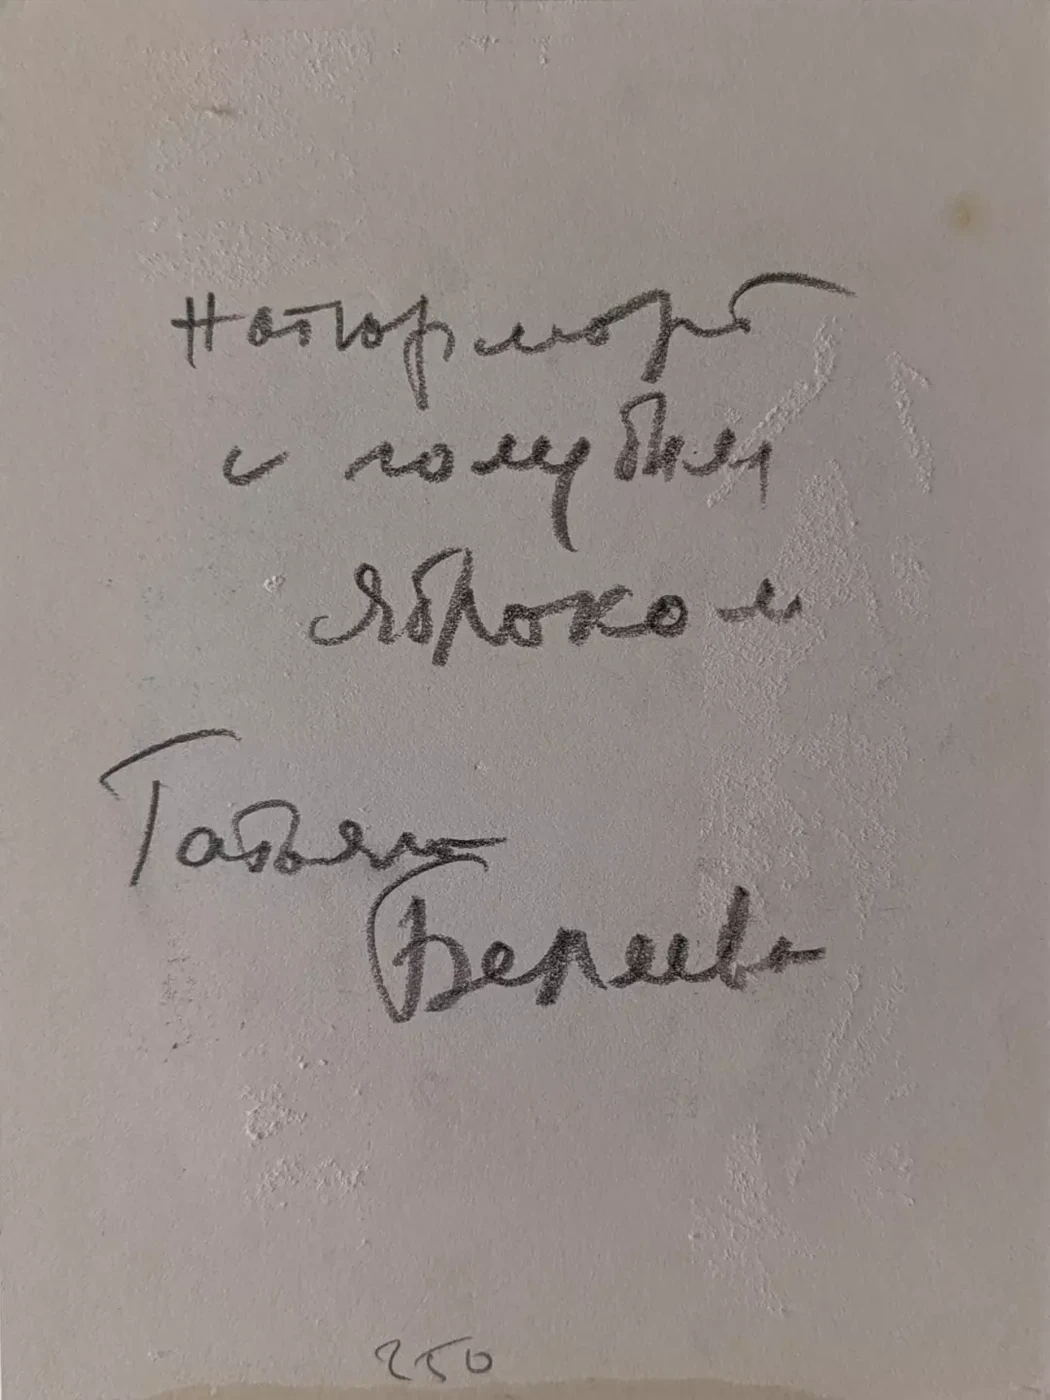 Натюрморт
с голубым
яблоком
Татьяна
250